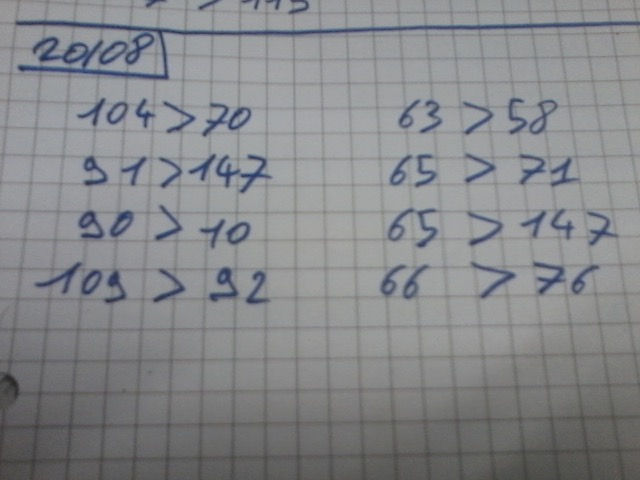 > 113
20/08
104 > 70 63 > 58
91 > 147 65 > 71
90 > 10 65 > 147
109 > 92 66 > 76